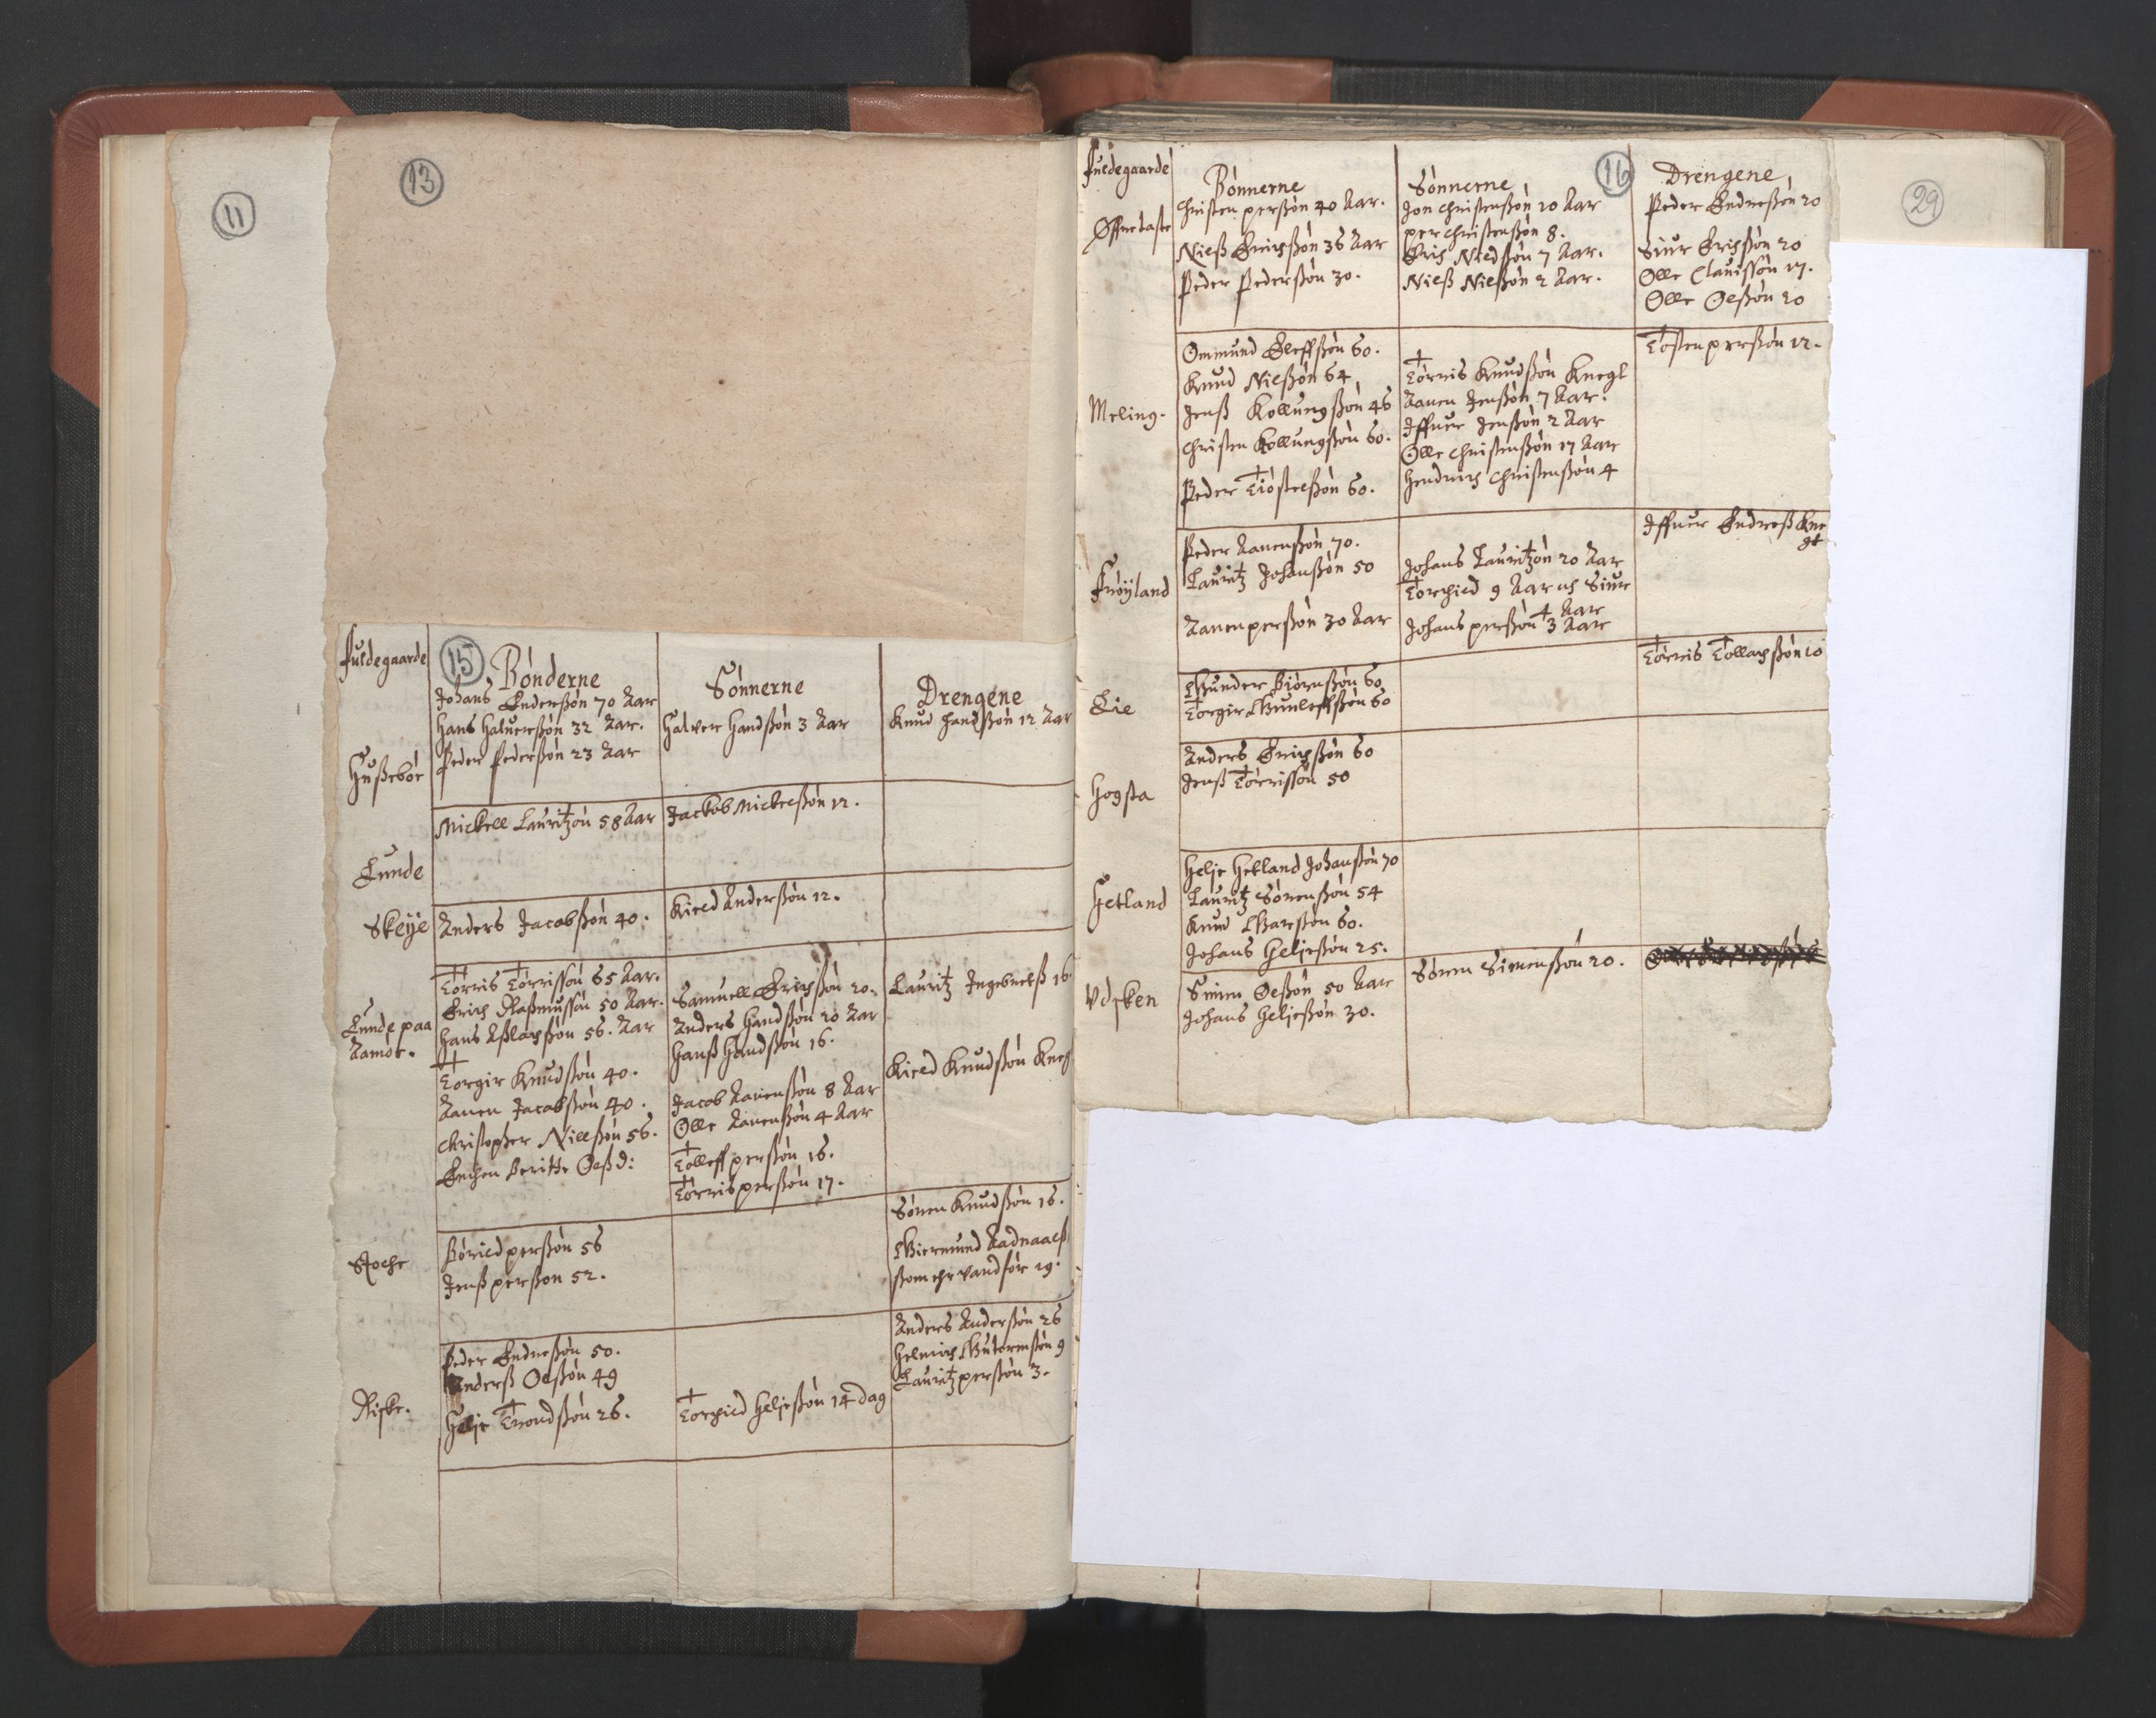 11
13
15
Fuldegaarde
Bønderne
Sønnerne
Drengene
Hußebøe
Johans Enderßøn 70 Aar
Hans Haluerßøn 32 Aar.
Peder Pederßøn 23 Aar
Halver Handßøn 3 Aar
Knud Handßøn 12 Aar
Lunde
Mickell Lauritzøn 58 Aar
Jackob Mickelßøn 12.
Skeije
Anders Jacobßøn 40.
Kield Anderßøn 12.
Lunde paa
Aamøe.
Tørris Tørrissøn 65 Aar.
Erich Raßmussøn 50 Aar.
Hans Aßlachßøn 56. Aar
Torgir Knudßøn 40.
Aanen Jacobßøn 40.
Christopher Nillßøn 56.
Enchen Beritte Oelßd:
Samuell Erichßøn 20.
Anders Handßøn 20 Aar
Hanß Handßøn 16.
Jacob Aanenßøn 8 Aar
Olle Aanenßøn 4 Aar
Tolleff perßøn 16.
Tørris perßøn 17.
Lauritz Ingebretß 16.
Kield Knudßøn Kneg
Børild perßøn 56
Jenß perßøn 52.
Søren Knudßøn 16.
Giermund Aadnaaelß
ßom ehr vandfør 19.
Riske.
Peder Endreßøn 50.
Anderß Oelßøn 49
Helje Trondßøn 26.
Torkield Heljeßøn 14 dag
Anders Anderßøn 26
Helmich Gutormßøn 9
Lauritz perßøn 3.
16
29
Fuldegaarde
Bønnerne
Sønnerne
Drengene
Christen perßøn 40 Aar.
Nielß Erichßøn 36 Aar
Peder Pederßøn 30.
Jon Christenßøn 10 Aar
per Christenßøn 8.
Erich Nielßøn 7 Aar.
Nielß Nielßøn 2 Aar.
Peder Endreßøn 20
Siur Erichßøn 20
Olle Clauissøn 17.
Olle Oelßøn 20
Meling.
Ommund Eleffßøn 60.
Knud Nielßøn 64
Jenß Kollungßøn 46
Christen Kollungßøn 60.
Peder Tiøstelßøn 60.
Tørris Knudßøn Knegt
Aanen Jenßøn 7 Aar.
Iffuer Jenßøn 2 Aar
Olle Christenßøn 17 Aar
Hendrich Christenßøn 4
Tosten perßøn 12.
Frøyland
Peder Aanenßøn 70.
Lauritz Johanßøn 50
Aanen perßøn 30 Aar
Johans Lauritzøn 20 Aar
Torkield 9 Aar och Siur
4 Aar
Johans perßøn 3 Aar
Iffuer Endreß Kne
gt
Lie
Gunder Biørnßøn 60
Torgir Gunleffßøn 60
Tørris Tollachßøn 10
Hogsta
Anders Erichßøn 60
Jenß Tørrissøn 50
Hetland
Helje Hetland Johanßøn 70
Lauritz Sørenßøn 54
Knud Garßøn 60.
Johans Heljeßøn 25.
Vdsken
Simen Oelßøn 50 Aar
Johans Heljeßøn 30.
Søren Simenßøn 20.